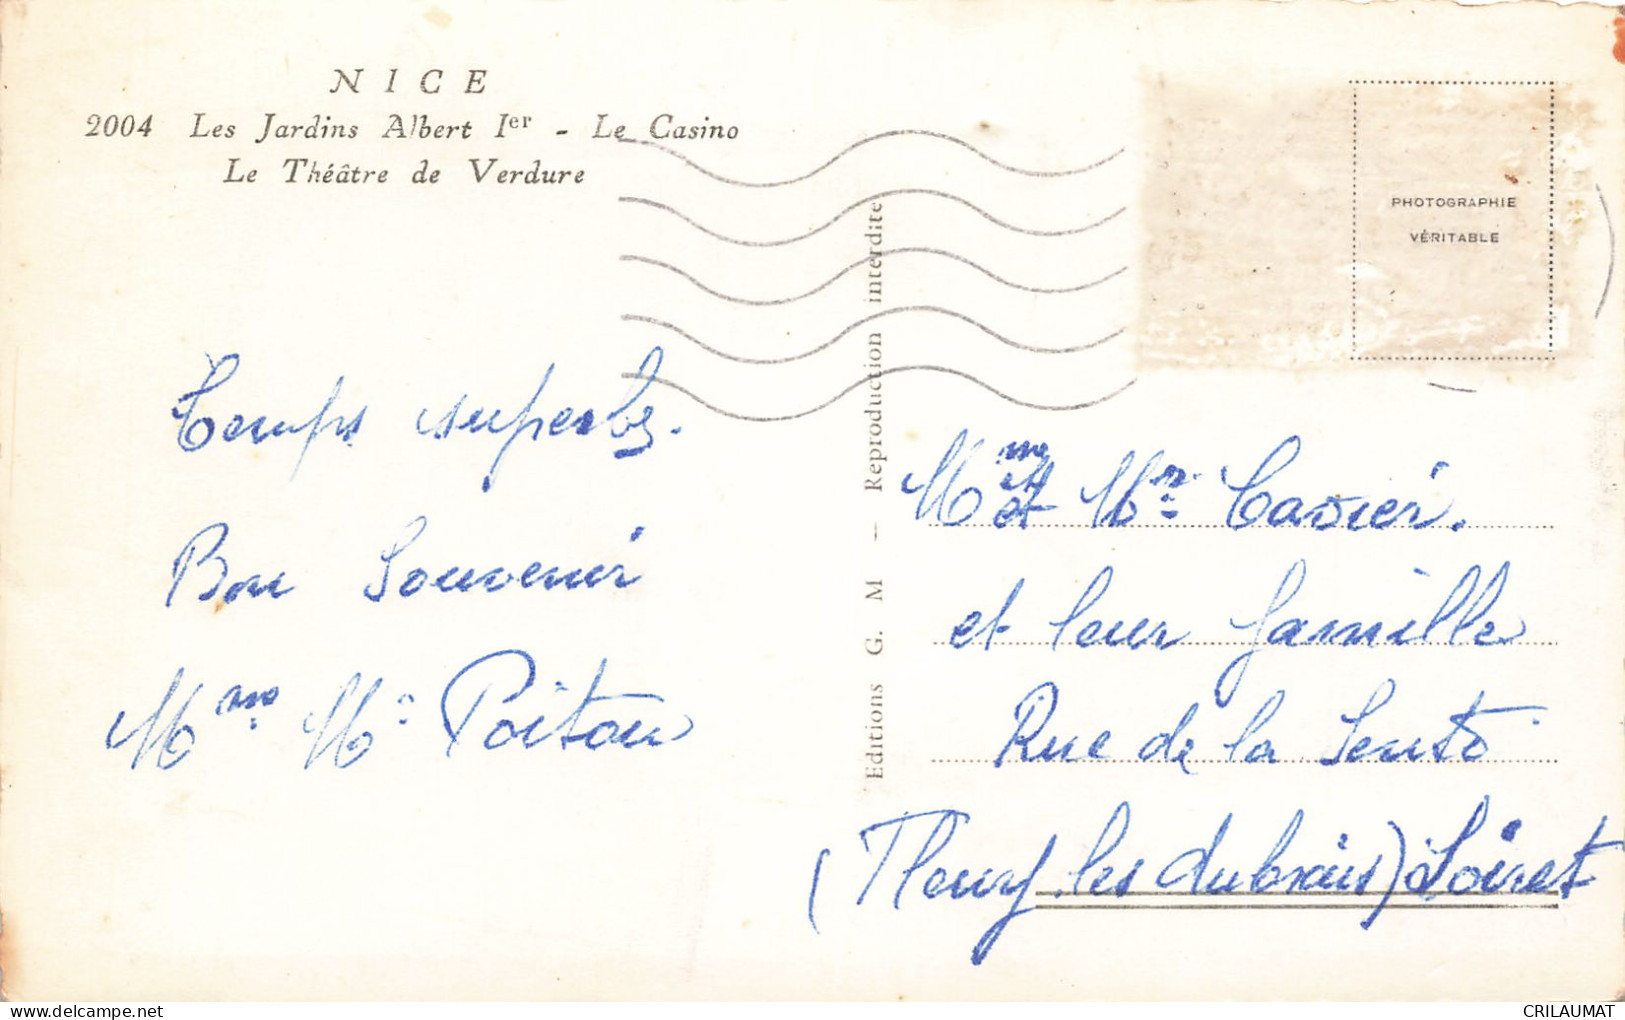 NICE
2004 Les Jardins Albert Ier - Le Casino
Le Théâtre de Verdure
PHOTOGRAPHIE
VÉRITABLE
Editions G. M — Reproduction interdite
Temps superbe.
Bon Souvenir
Mme Mr Poitou
Mme et Mr
et leur famille
Rue de la
(Fleury les Aubrais) Loiret
CRILAUMAT